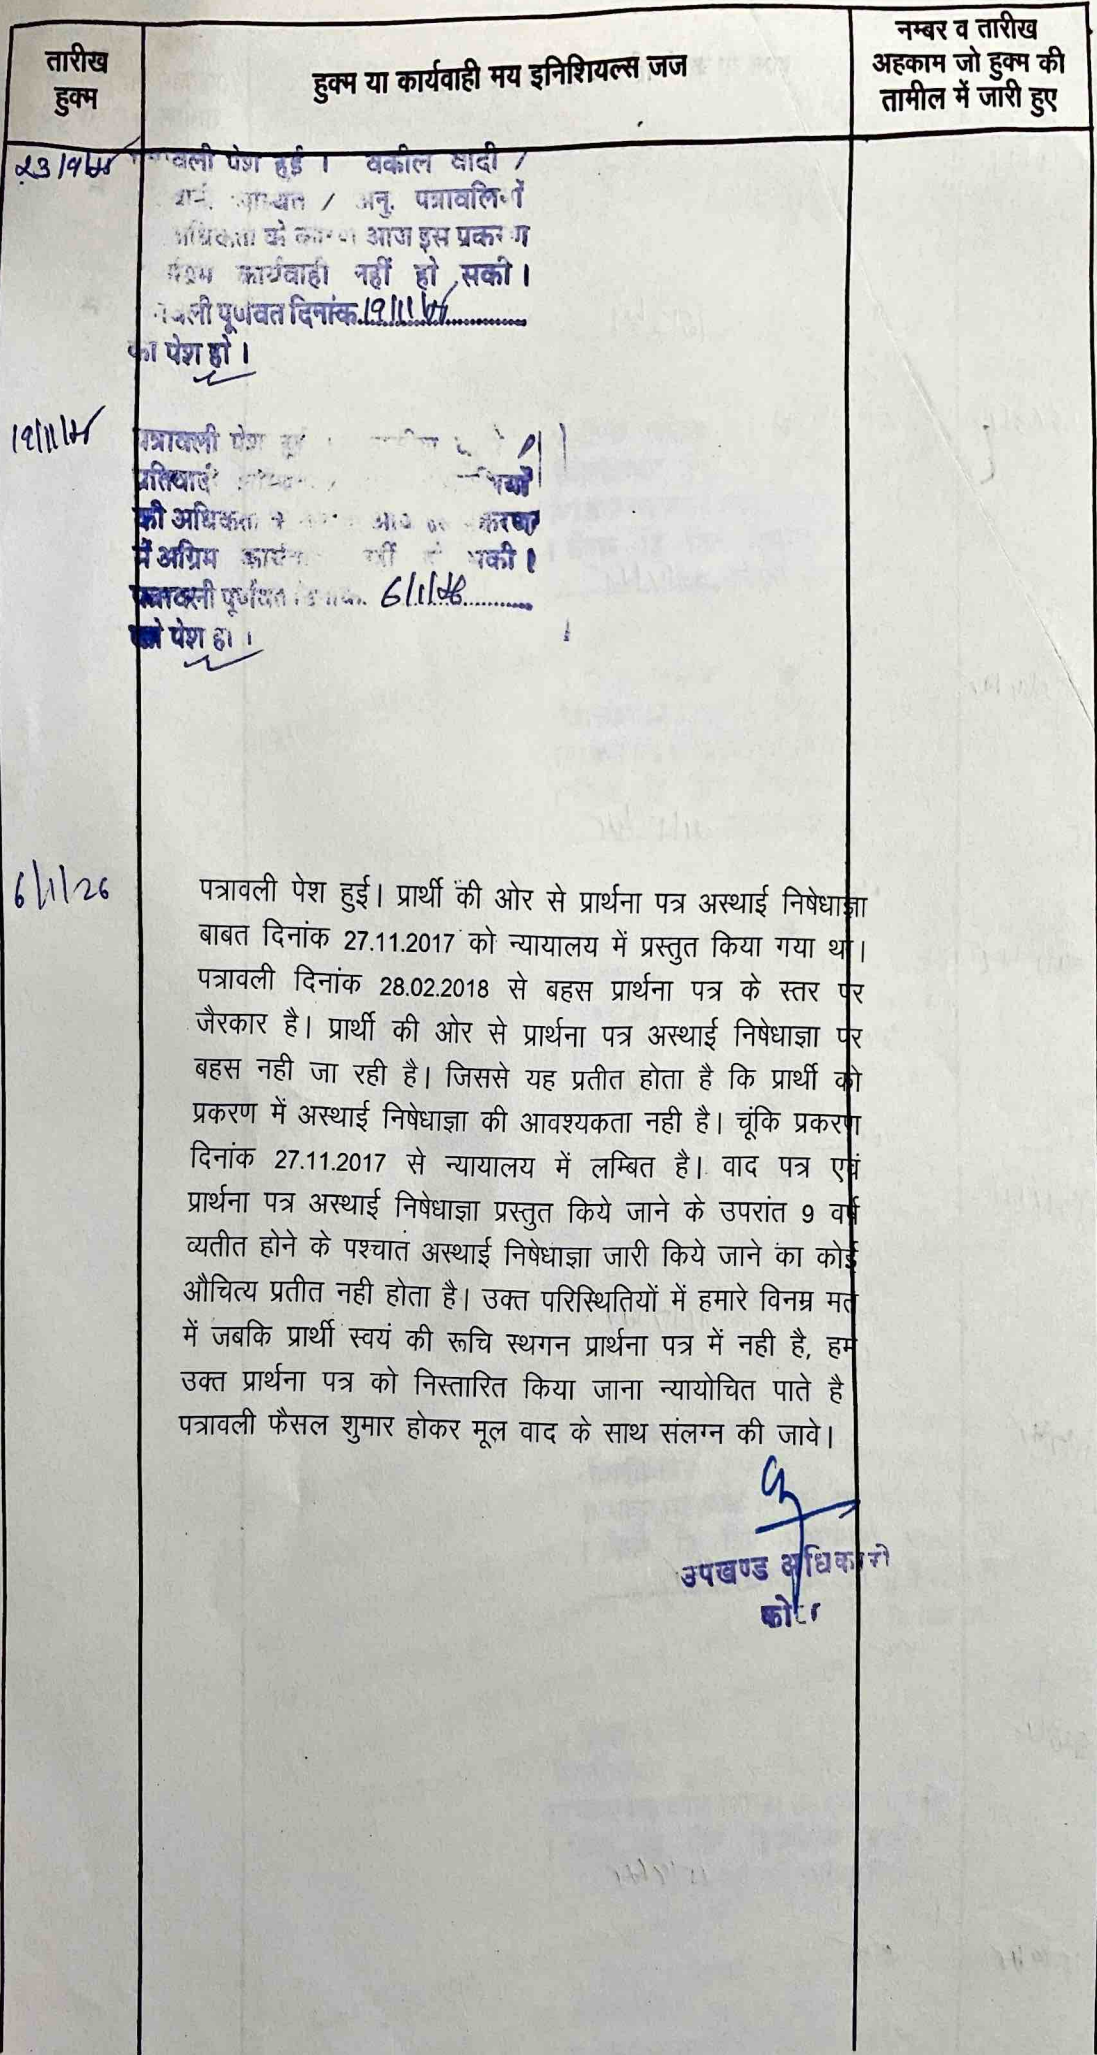 तारीख
हुक्म
हुक्म या कार्यवाही मय इनिशियल्स जज
नम्बर व तारीख
अहकाम जो हुक्म की
तामील में जारी हुए
पेश हुई । वकील वादी /
/ अनु. पत्रावलियों
आज इस प्रकरण
कार्यवाही नहीं हो सकी ।
पूर्णवत दिनांक
पेश हो ।
पत्रावली पेश
की अधिकता
में अग्रिम
पेश हो ।
6/1/26
पत्रावली पेश हुई। प्रार्थी की ओर से प्रार्थना पत्र अस्थाई निषेधाज्ञा
बाबत दिनांक 27.11.2017 को न्यायालय में प्रस्तुत किया गया था।
पत्रावली दिनांक 28.02.2018 से बहस प्रार्थना पत्र के स्तर पर
जैरकार है। प्रार्थी की ओर से प्रार्थना पत्र अस्थाई निषेधाज्ञा पर
बहस नही जा रही है। जिससे यह प्रतीत होता है कि प्रार्थी को
प्रकरण में अस्थाई निषेधाज्ञा की आवश्यकता नही है। चूंकि प्रकरण
दिनांक 27.11.2017 से न्यायालय में लम्बित है। वाद पत्र एवं
प्रार्थना पत्र अस्थाई निषेधाज्ञा प्रस्तुत किये जाने के उपरांत 9 वर्ष
व्यतीत होने के पश्चात अस्थाई निषेधाज्ञा जारी किये जाने का कोई
औचित्य प्रतीत नही होता है। उक्त परिस्थितियों में हमारे विनम्र मत
में जबकि प्रार्थी स्वयं की रूचि स्थगन प्रार्थना पत्र में नही है, हम
उक्त प्रार्थना पत्र को निस्तारित किया जाना न्यायोचित पाते है
पत्रावली फैसल शुमार होकर मूल वाद के साथ संलग्न की जावे।
उपखण्ड अधिकारी